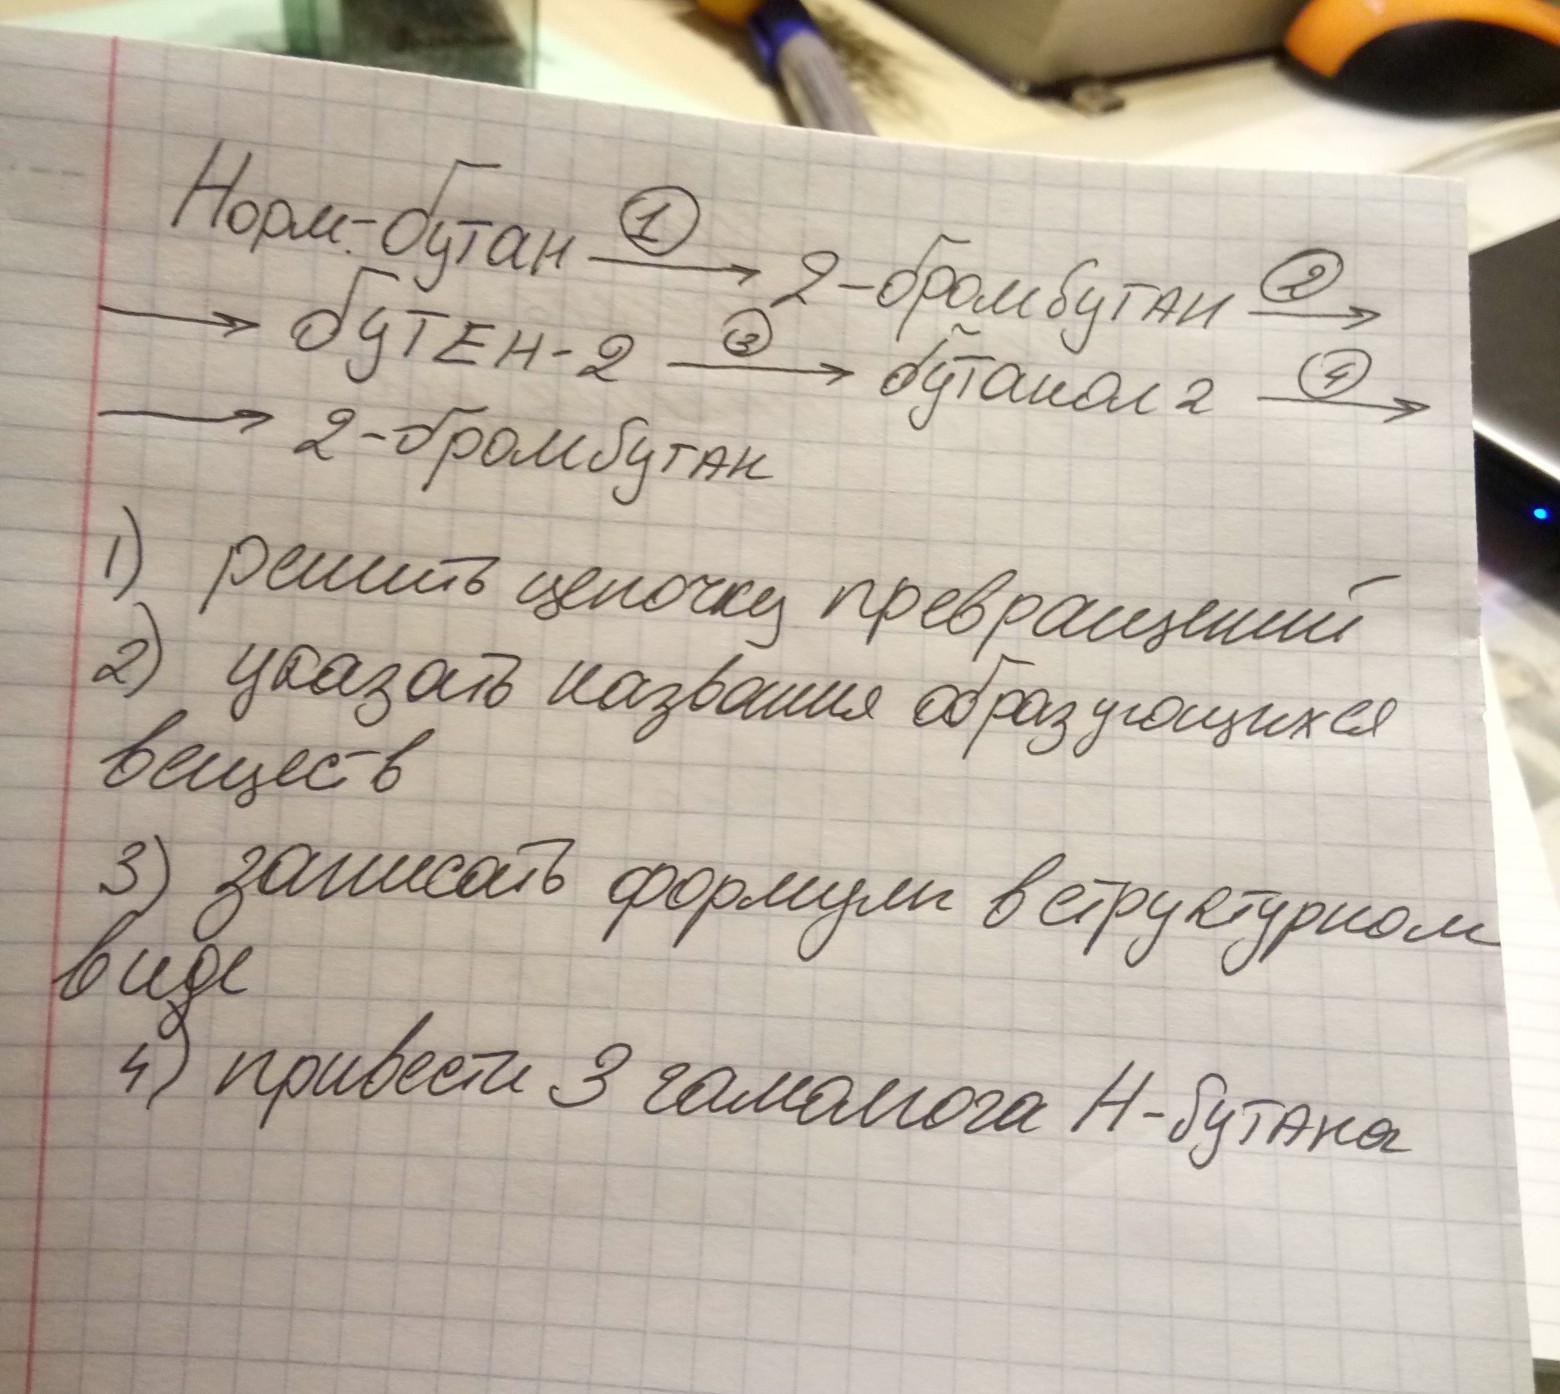 Норм.-бутан ① → 2-бромбутан ② →
→ бутен-2 ③ → бутанол 2 ④ →
→ 2-бромбутан
1) решить цепочку превращений
2) указать названия образующихся
веществ
3) записать формулы в структурном
виде
4) привести 3 гамолога Н-бутана